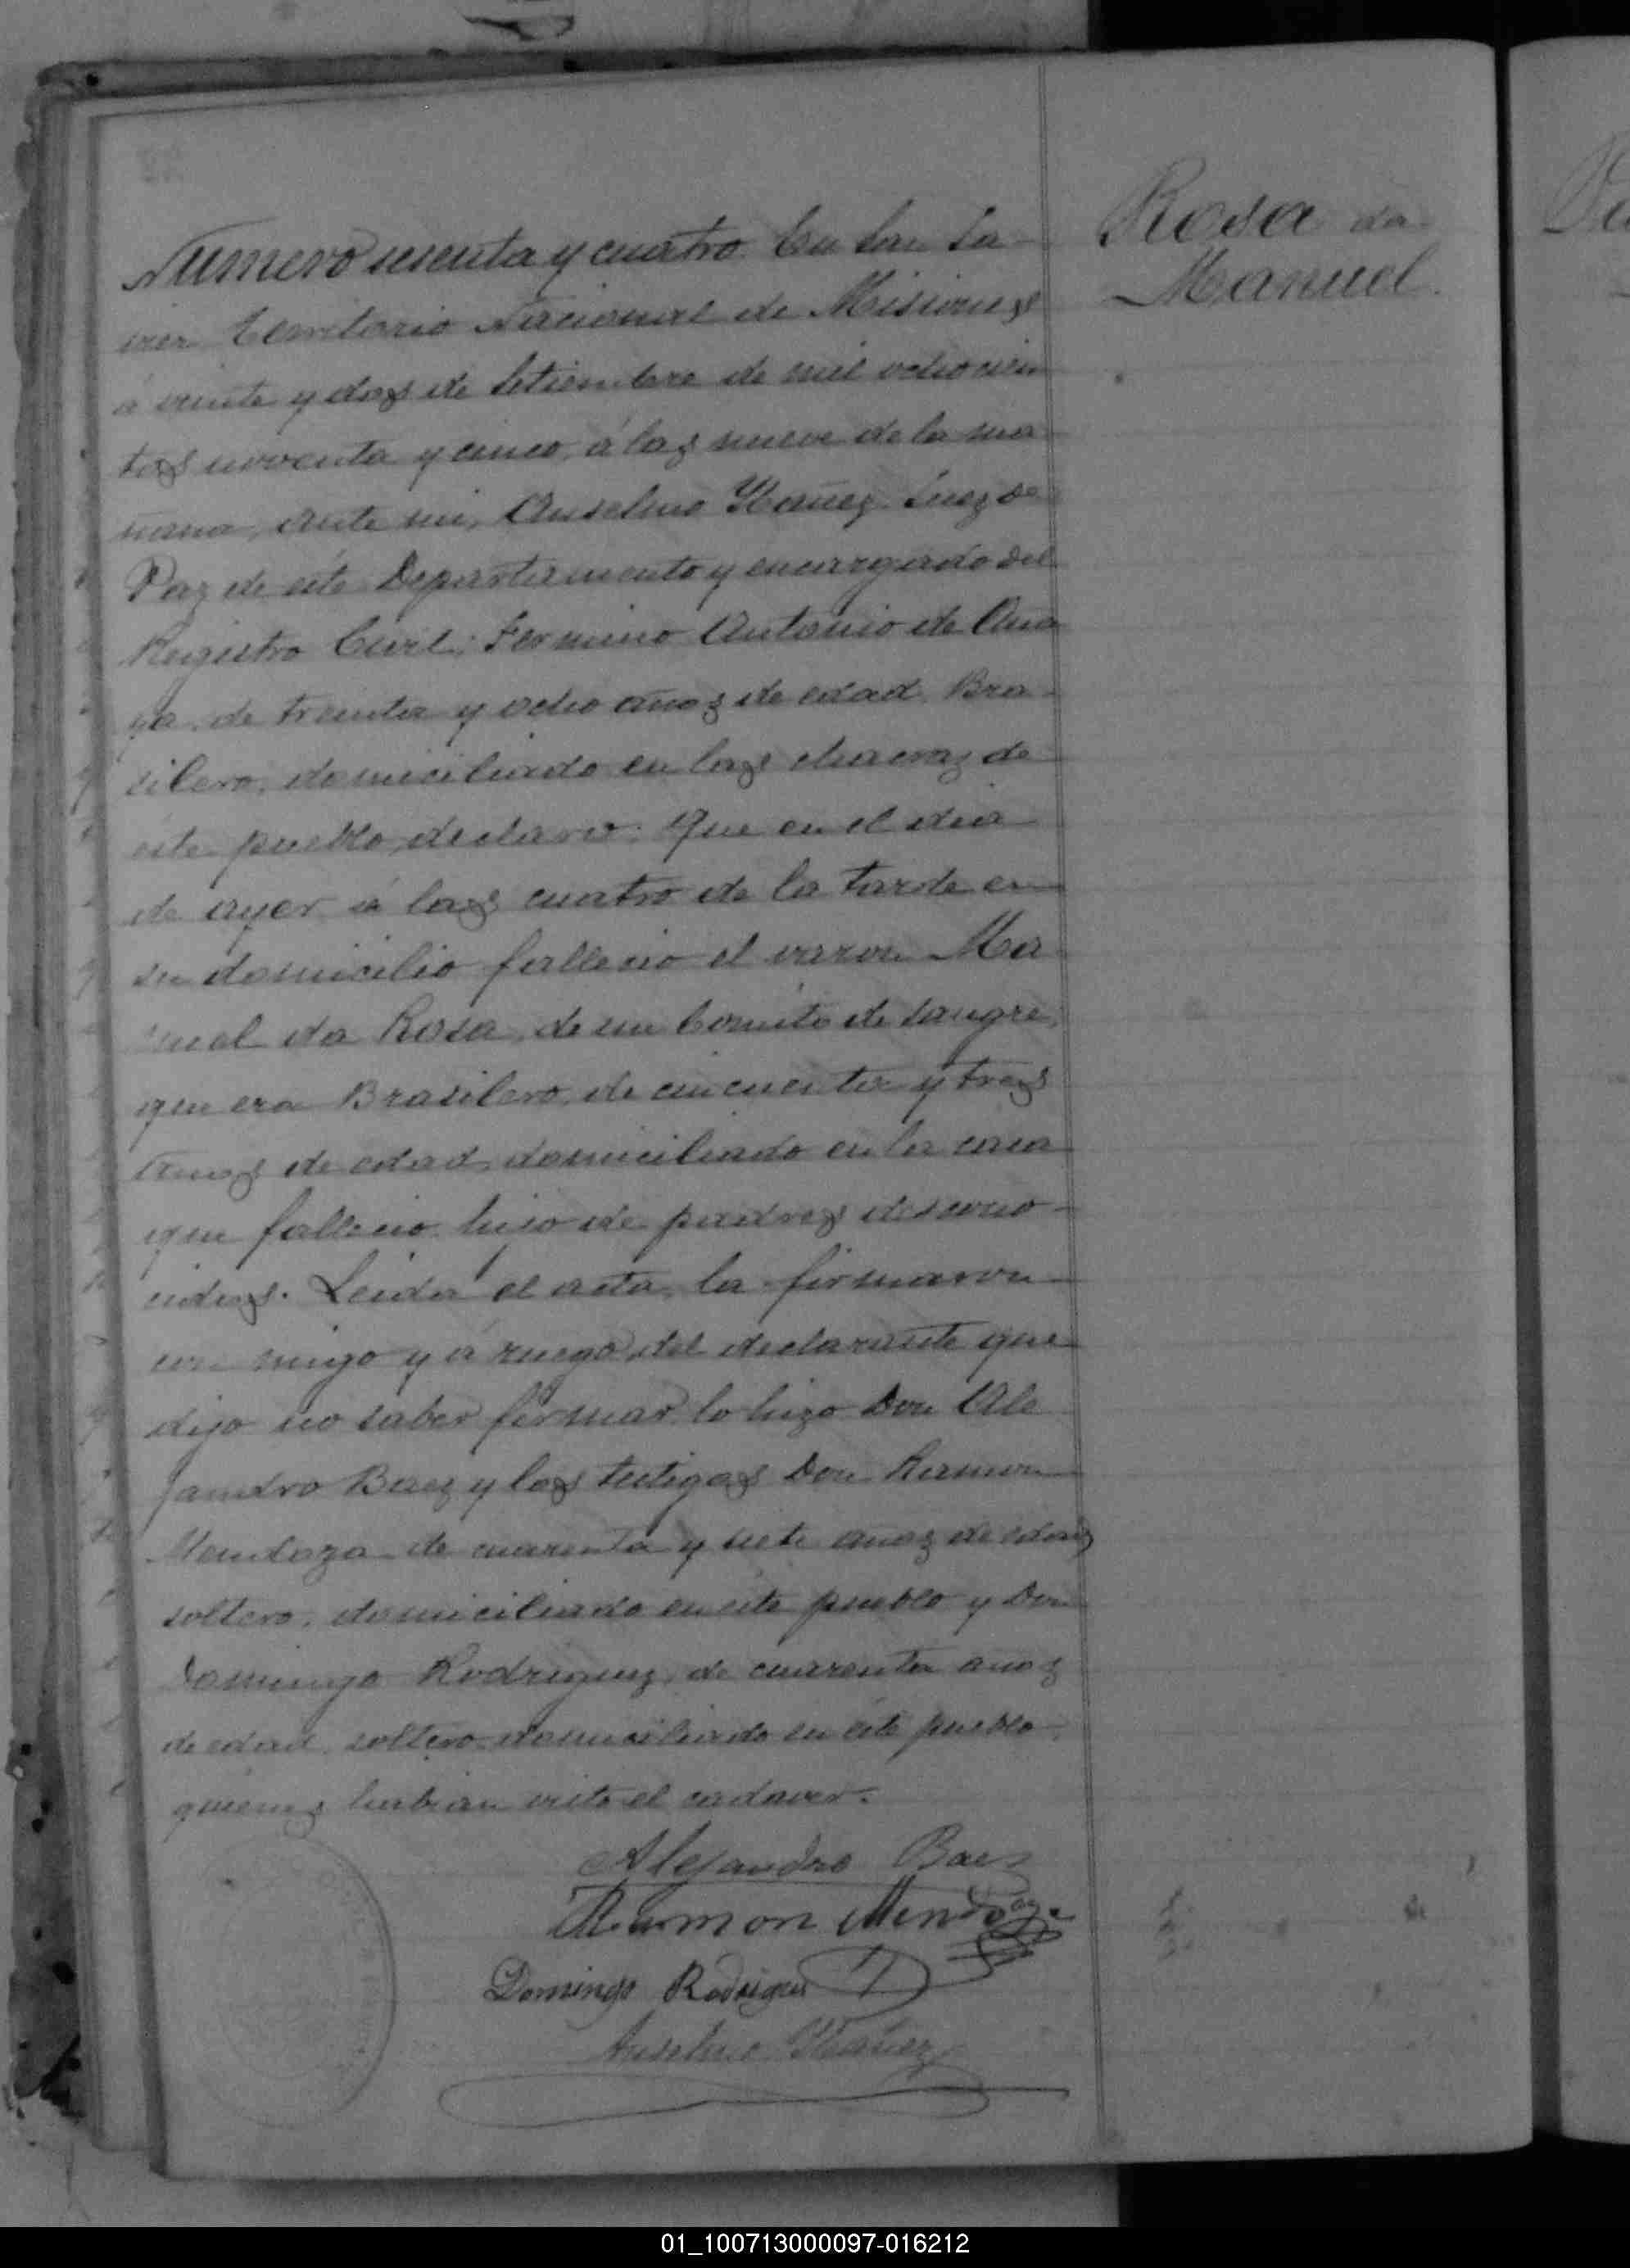 Rosa da
Manuel.
Numero sesenta y cuatro. En San Ja-
vier Territorio Nacional de Misiones
á veinte y dos de Setiembre de mil ochocien
tos noventa y cinco, á las nueve de la ma
ñana, ante mi, Anselmo Ybañez Juez de
Paz de este Departamento y encargado del
Registro Civil; Fermino Antonio de
de treinta y ocho años de edad, Bra-
silero, domiciliado en las chacras de
este pueblo, declaro: Que en el dia
de ayer á las cuatro de la tarde en
su domicilio fallecio el varon Ma
nuel da Rosa, de un bomito de sangre,
que era Brasilero, de cincuenta y tres
años de edad, domiciliado en la casa
que fallecio, hijo de padres descono-
cidos. Leida el acta, la firmaron
con migo y á ruego del declarante que
dijo no saber firmar lo hizo Don Ale
jandro Baez y los testigos Don Ramon
Mendoza de cuarenta y siete años de edad,
soltero, domiciliado en este pueblo y Don
Domingo Rodriguez, de cuarenta años
de edad, soltero, domiciliado en este pueblo
quienes habian visto el cadaver.
Alejandro Baez
Ramon Mendoza
Domingo Rodrigues
Anselmo Ybañez
01_100713000097-016212